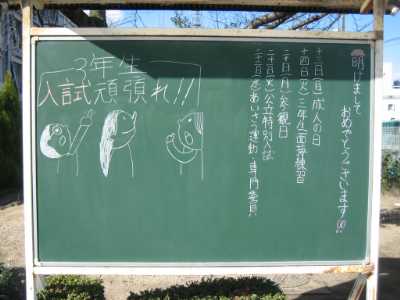 明けまして
おめでとうございます!!!
十三日(月)成人の日
十四日(火)三年生面接練習
二十日(月)参観日
二十一日(火)公立特別入試
あいさつ運動 専門委員
3年生
入試頑張れ!!